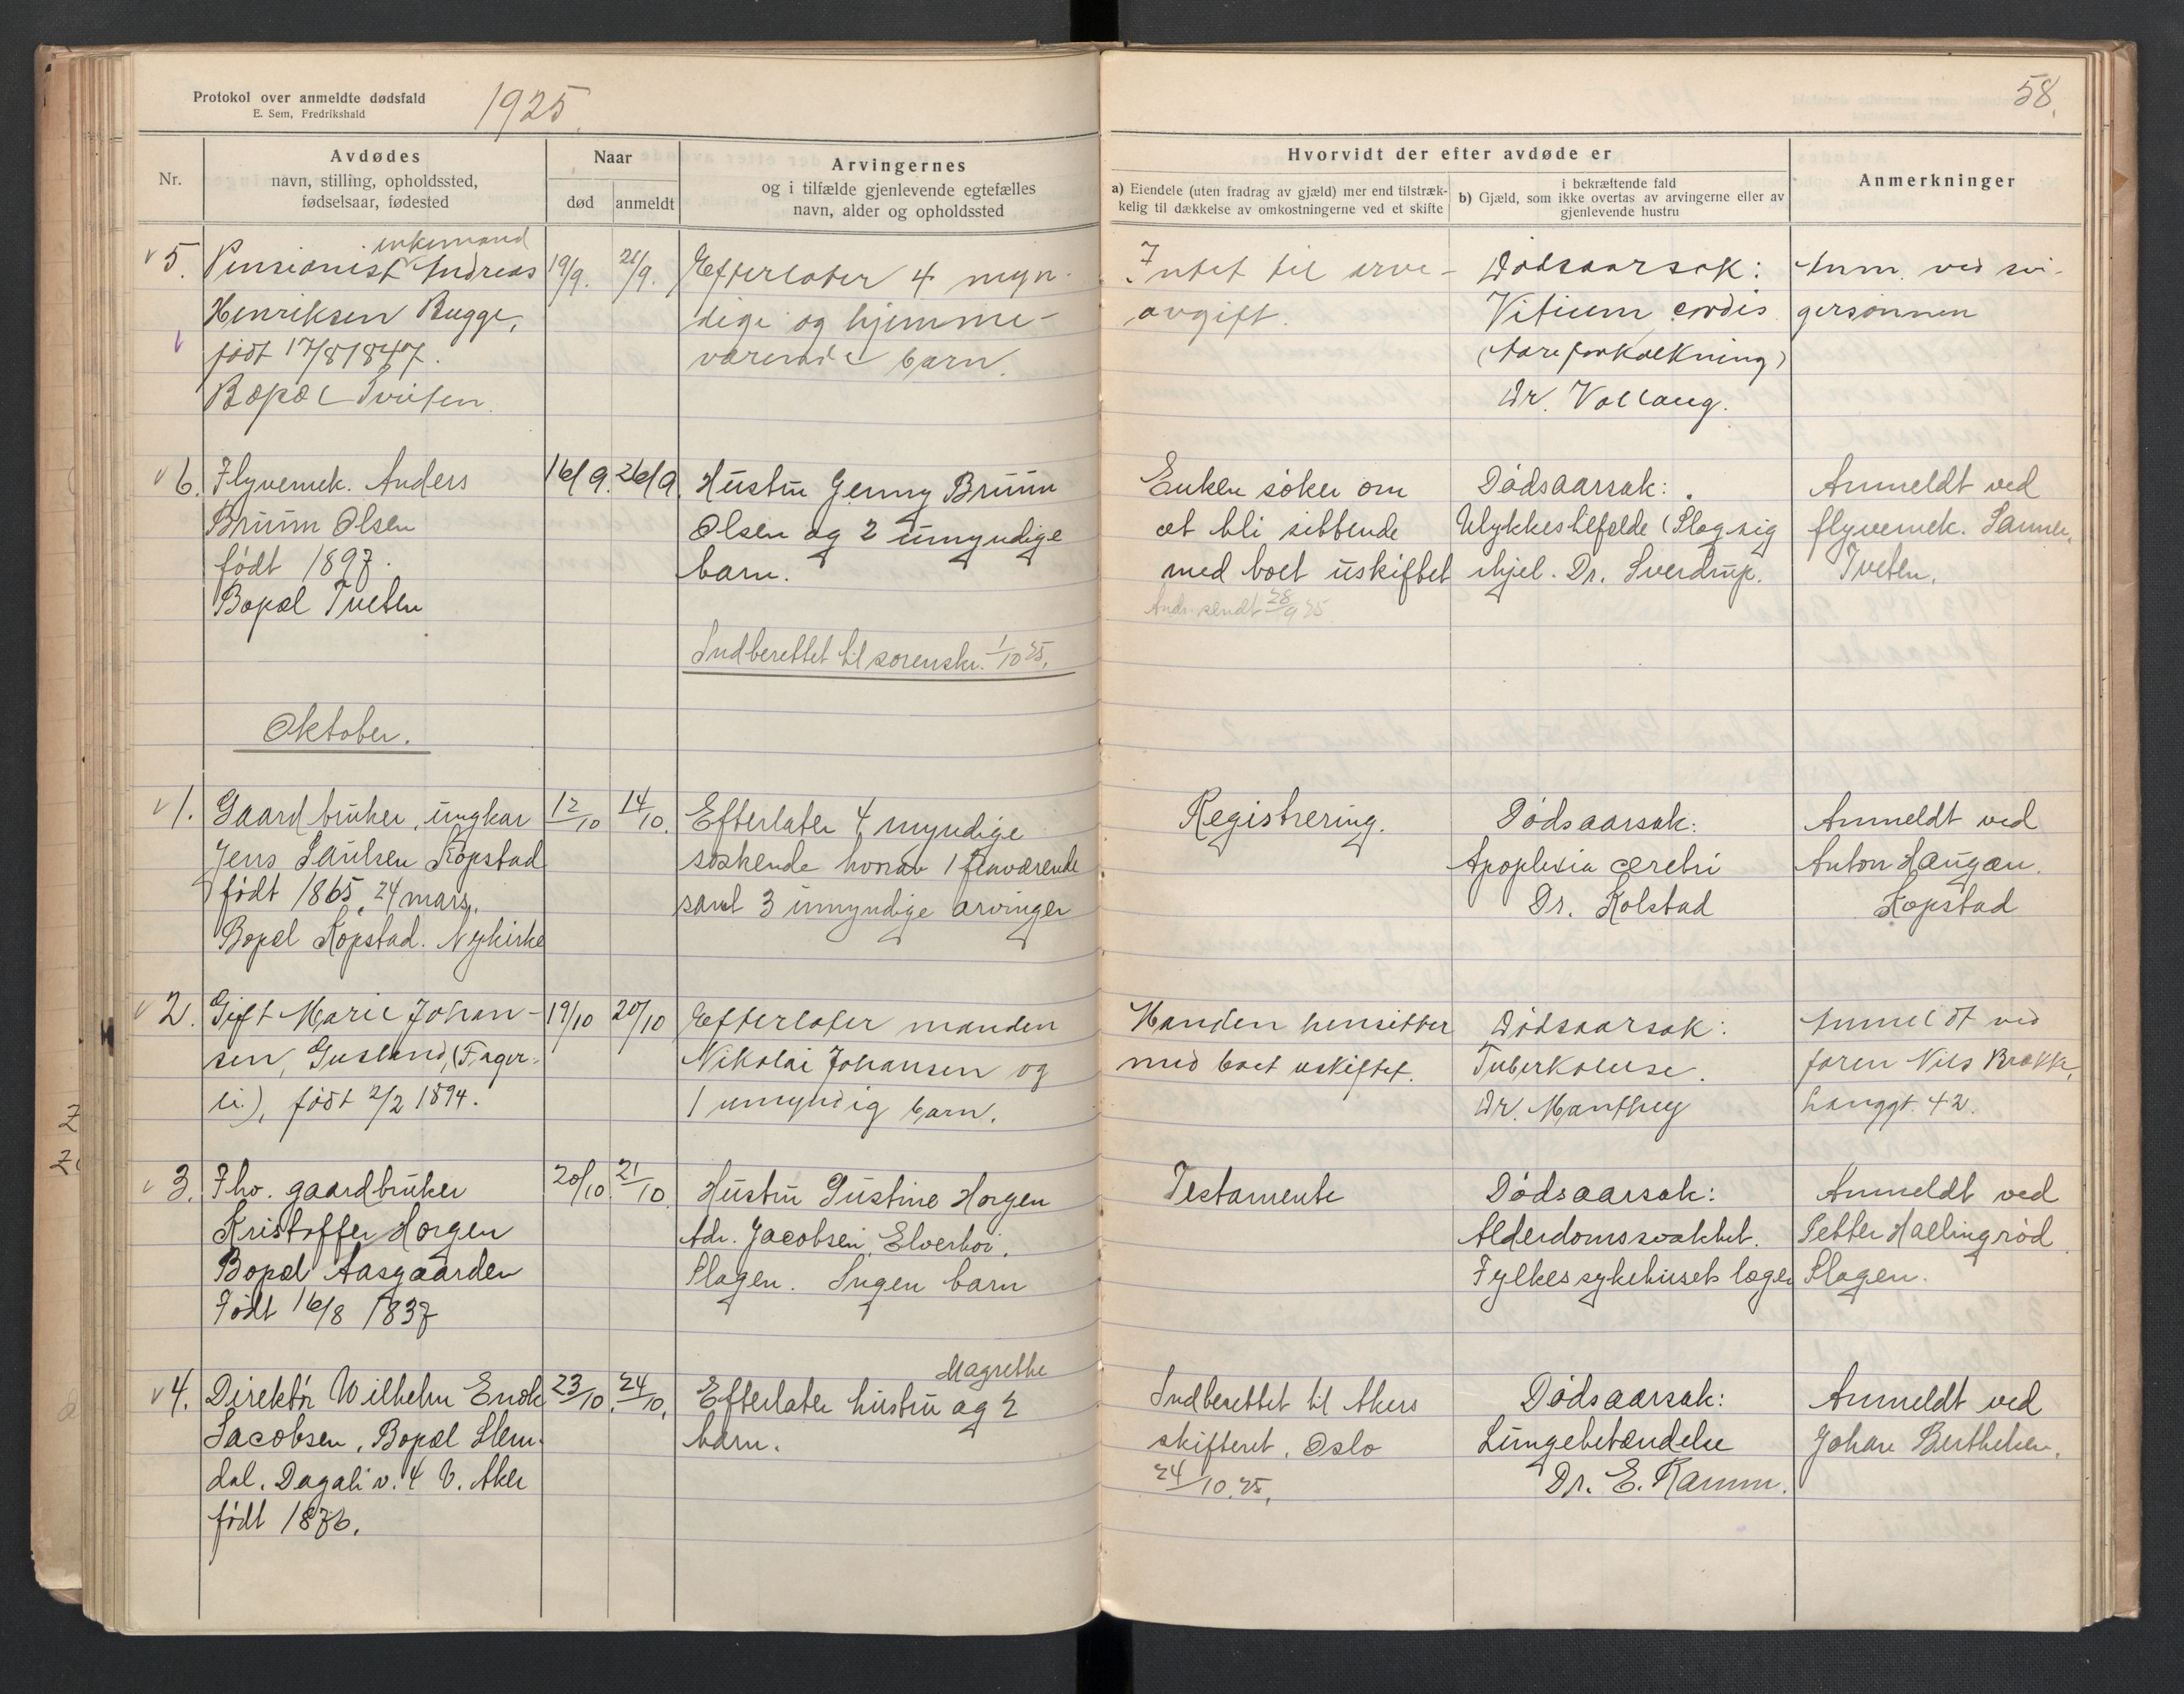 Protokol over anmeldte dødsfald
E. Sem, Fredrikshald
1925.
58.
Nr.
Avdødes
navn, stilling, opholdssted,
fødselsaar, fødested
Naar
død
anmeldt
Arvingernes
og i tilfælde gjenlevende egtefælles
navn, alder og opholdssted
Hvorvidt der efter avdøde er
a) Eiendele (uten fradrag av gjæld) mer end tilstræk-
kelig til dækkelse av omkostningerne ved et skifte
i bekræftende fald
b) Gjæld, som ikke overtas av arvingerne eller av
gjenlevende hustru
Anmerkninger
v 5.
enkemand
Pensionist Andreas
Henriksen Bugge,
født 17/8 1847.
Bopæl Tveiten.
19/9.
21/9.
Efterlater 4 myn-
dige og hjemme-
værende barn.
Intet til arve-
avgift.
Dødsaarsak:
Vitium cordis
(Aareforkalkning)
Dr. Vollaug.
Anm. ved svi-
gersønnen
v 6.
Flyvemek. Anders
Bruun Olsen
født 1897.
Bopæl Tveten
16/9.
26/9.
Hustru Jenny Bruun
Olsen og 2 umyndige
barn.
Indberettet til sorenskr. 1/10 25.
Enken søker om
at bli sittende
med boet uskiftet
Andr. sendt 28/9 25
Dødsaarsak:
Ulykkestilfælde (Slog sig
ihjel. Dr. Sverdrup.
Anmeldt ved
flyvemek. Sannes,
Tveten.
Oktober.
v 1.
Gaardbruker, ungkar
Jens Paulsen Kopstad
født 1865, 24 mars,
Bopæl Kopstad. Nykirke
12/10
14/10.
Efterlater 4 myndige
søskende hvorav 1 fraværende
samt 3 umyndige arvinger
Registrering.
Dødsaarsak:
Apoplexia cerebri
Dr. Kolstad
Anmeldt ved
Anton Haugan.
Kopstad
v 2.
Gift Marie Johan-
sen, Gusland, (Fager-
li), født 2/2 1894.
19/10
20/10
Efterlater manden
Nikolai Johansen og
1 umyndig barn.
Manden hensitter
med boet uskiftet.
Dødsaarsak:
Tuberkolose.
Dr. Manthey
Anmeldt ved
faren Nils Brække,
Langgt. 42.
v 3.
Fhv. gaardbruker
Kristoffer Horgen
Bopæl Aasgaarden
Født 16/8 1837
20/10.
21/10.
Hustru Gustine Horgen
Adr. Jacobsen, Elverhøi,
Slagen. Ingen barn
Testamente
Dødsaarsak:
Alderdomssvakhet.
Fylkessykehusets læger
Anmeldt ved
Petter Hællingrød
Slagen.
v 4.
Direktør Wilhelm Enok
Jacobsen, Bopæl Slem-
dal. Dagali v. 4 V. Aker
født 1876.
23/10.
24/10.
Magrethe
Efterlater hustru og 2
barn.
Indberettet til Akers
skifteret, Oslo
24/10.25.
Dødsaarsak:
Lungebetændelse
Dr. E. Ramm.
Anmeldt ved
Johan Berthelsen.